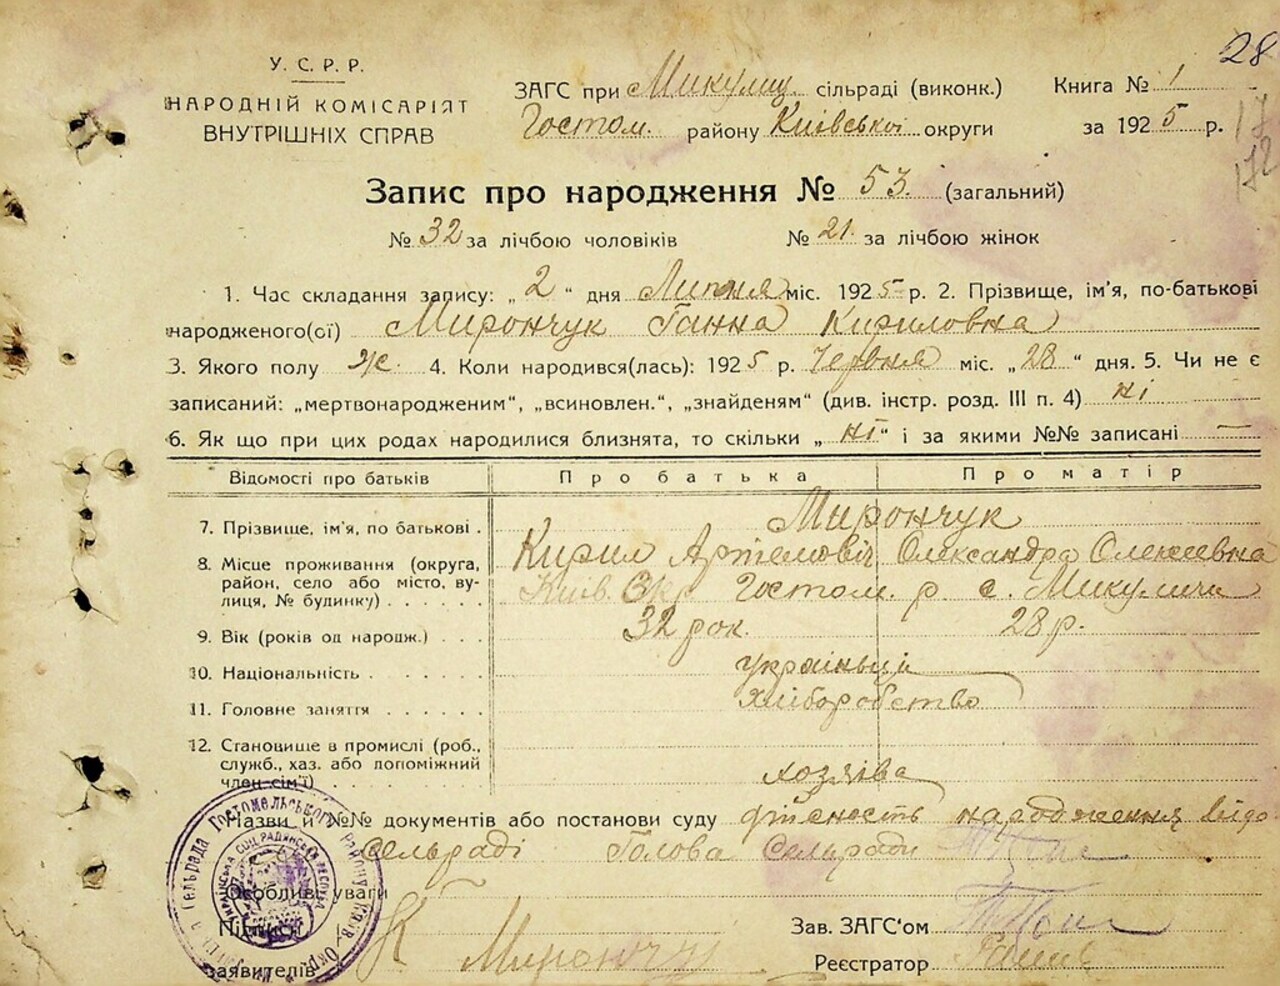 28
У. С. Р. Р.
НАРОДНІЙ КОМІСАРІЯТ
ВНУТРІШНІХ СПРАВ
ЗАГС при Микулиц. сільраді (виконк.)
Гостом. району Київської округи
Книга № 1
за 1925 р.
17
172
Запис про народження № 53. (загальний)
№ 32 за лічбою чоловіків № 21. за лічбою жінок
1. Час складання запису: „2“ дня Липня міс. 1925 р. 2. Прізвище, ім'я, по-батькові
народженого(ої) Мирончук Ганна Кириловна
3. Якого полу ж. 4. Коли народився(лась): 1925 р. Червня міс. „28“ дня. 5. Чи не є
записаний: „мертвонародженим“, „всиновлен.“, „знайденям“ (див. інстр. розд. III п. 4) ні
6. Як що при цих родах народилися близнята, то скільки „ні“ і за якими №№ записані —
Відомості про батьків Про батька Про матір
7. Прізвище, ім'я, по батькові . Мирончук
Кирил Артемович Олександра Олексеевна
8. Місце проживання (округа,
район, село або місто, ву-
лиця, № будинку) . . . . . . Київ. Окр. Гостом. р. с. Микуличи
9. Вік (років од народж.) . . . 32 рок. 28 р.
10. Національність . . . . . . українці
11. Головне заняття . . . . . . хліборобство
12. Становище в промислі (роб.,
служб., хаз. або допоміжний
член сім'ї) . . . . . . . . хозяїва
Назви й №№ документів або постанови суду дійсность народження видо
сельраді Голова Сельради
Особливі уваги
Підписи
заявителів К Мирончук
Зав. ЗАГС'ом
Реєстратор